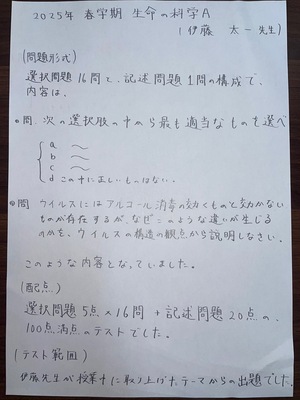 2025年 春学期 生命の科学A
(伊藤 太一先生)
(問題形式)
選択問題16問と、記述問題1問の構成で、
内容は、
・問. 次の選択肢の中から最も適当なものを選べ
a 〜
b 〜
c 〜
d この中に正しいものはない.
・問 ウイルスにはアルコール消毒の効くものと効かない
ものが存在するが、なぜこのような違いが生じる
のかを、ウイルスの構造の観点から説明しなさい.
このような内容となっていました。
(配点)
選択問題5点×16問 + 記述問題20点の、
100点満点のテストでした。
(テスト範囲)
伊藤先生が授業中に取り上げたテーマからの出題でした。